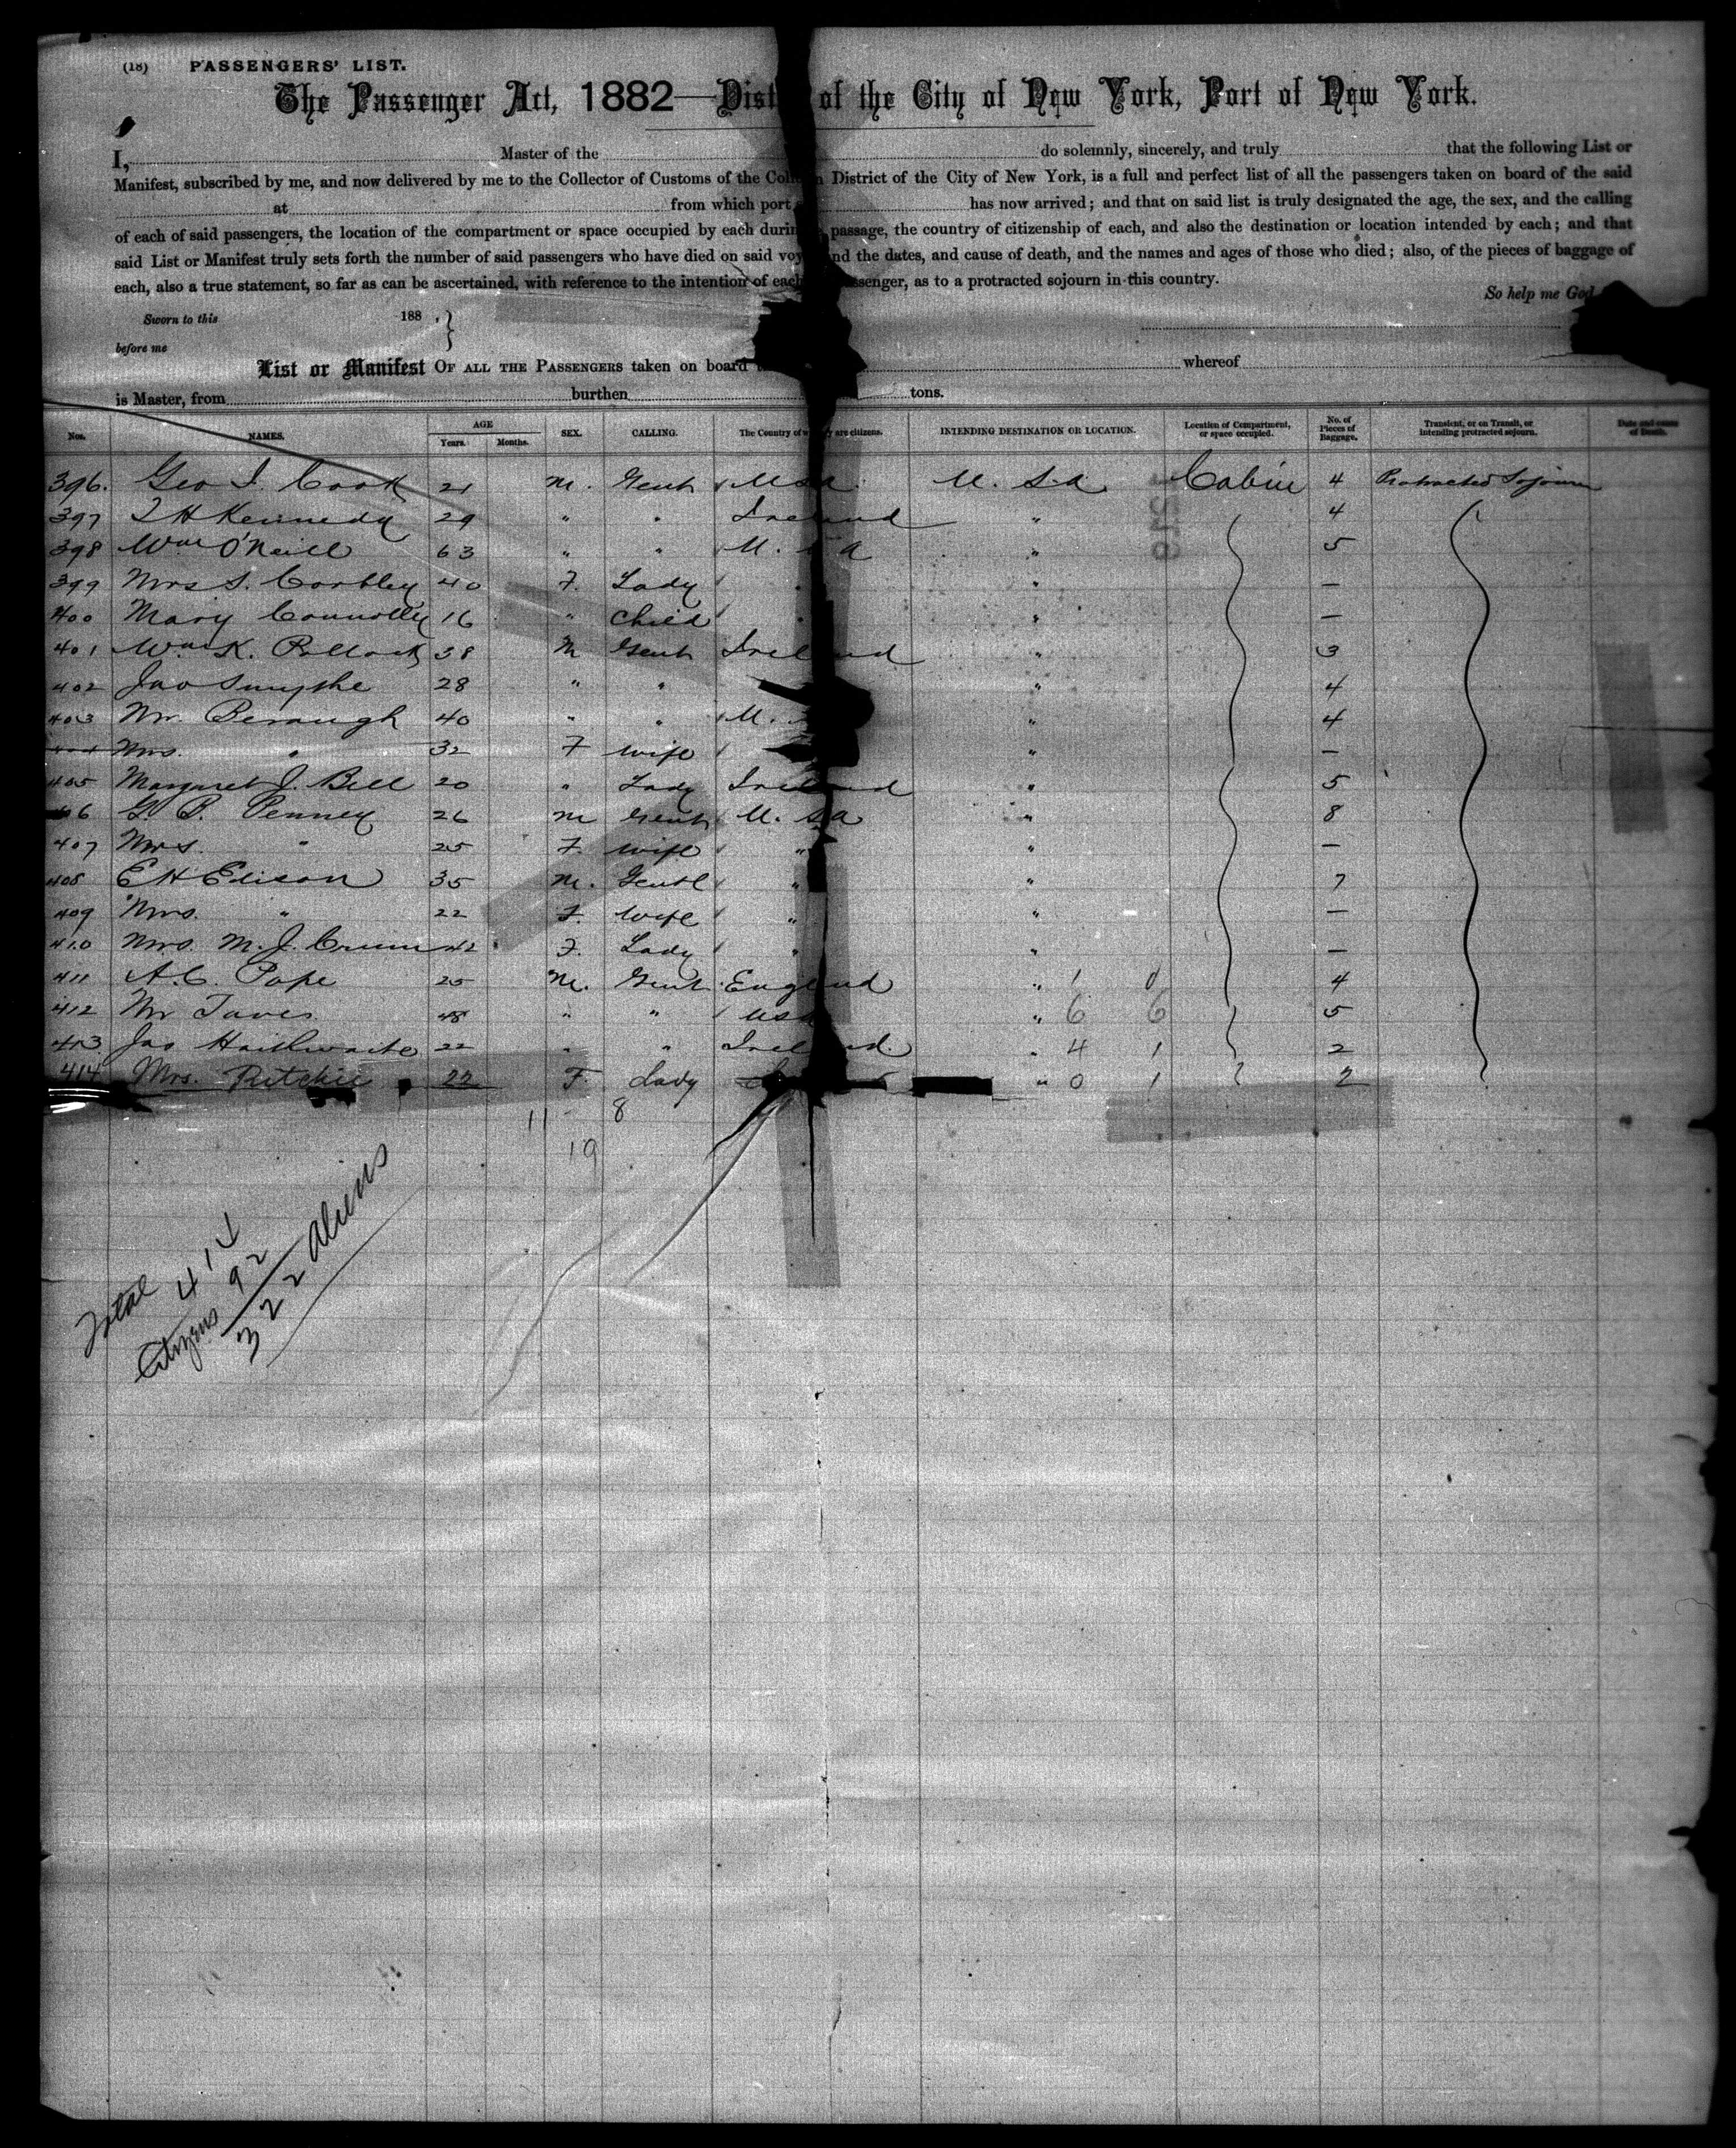 (18) PASSENGERS' LIST.
The Passenger Act, 1882—Dist of the City of New York, Port of New York.
I, Master of the do solemnly, sincerely, and truly that the following List or
Manifest, subscribed by me, and now delivered by me to the Collector of Customs of the Coll n District of the City of New York, is a full and perfect list of all the passengers taken on board of the said
at from which port has now arrived; and that on said list is truly designated the age, the sex, and the calling
of each of said passengers, the location of the compartment or space occupied by each durin passage, the country of citizenship of each, and also the destination or location intended by each; and that
said List or Manifest truly sets forth the number of said passengers who have died on said voy nd the dates, and cause of death, and the names and ages of those who died; also, of the pieces of baggage of
each, also a true statement, so far as can be ascertained, with reference to the intention of each ssenger, as to a protracted sojourn in this country.
So help me God
Sworn to this 188 ,
before me
List or Manifest OF ALL THE PASSENGERS taken on board whereof
is Master, from burthen tons.
Nos. NAMES. AGE Years. Months. SEX. CALLING. The Country of w y are citizens. INTENDING DESTINATION OR LOCATION. Location of Compartment, or space occupied. No. of Pieces of Baggage. Transient, or on Transit, or intending protracted sojourn. Date and cause of Death.
396. Geo I. Cook 21 M. Gent USA U. S.A Cabin 4 Protracted Sojourn
397 Kennedy 29 " " Ireland " 4
398 Wm O'Neill 63 " " U. S A " 5
399 Mrs S. Corbley 40 F. Lady " —
400 Mary Connolly 16 " Child " —
401 Wm K. Pollock 38 M Gent Ireland " 3
402 Jno Smythe 28 " " " 4
403 Mr. Beraugh 40 " " U. S " 4
404 Mrs. " 32 F wife " —
405 Margaret J. Bell 20 " Lady Ireland " 5
406 G. P. Penney 26 M Gent U. S A " 8
407 Mrs. " 25 F. wife " " —
408 E H Edison 35 M. Gentl " " 7
409 Mrs. " 22 F. wife " " —
410 Mrs. M. J. Crum 42 F. Lady " " —
411 A. C. Pope 25 M. Gent England " 1 0 4
412 Mr 48 " " USA " 6 6 5
413 Jas Haithwaite 22 " " Ireland. " 4 1 2
414 Mrs. Ritchie 22 F. Lady " 0 1 2
11 8
19
Total 414
Citizens 92
322 Aliens